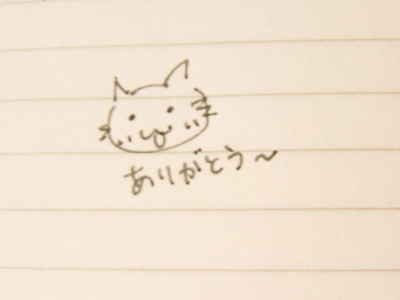 ありがとう〜